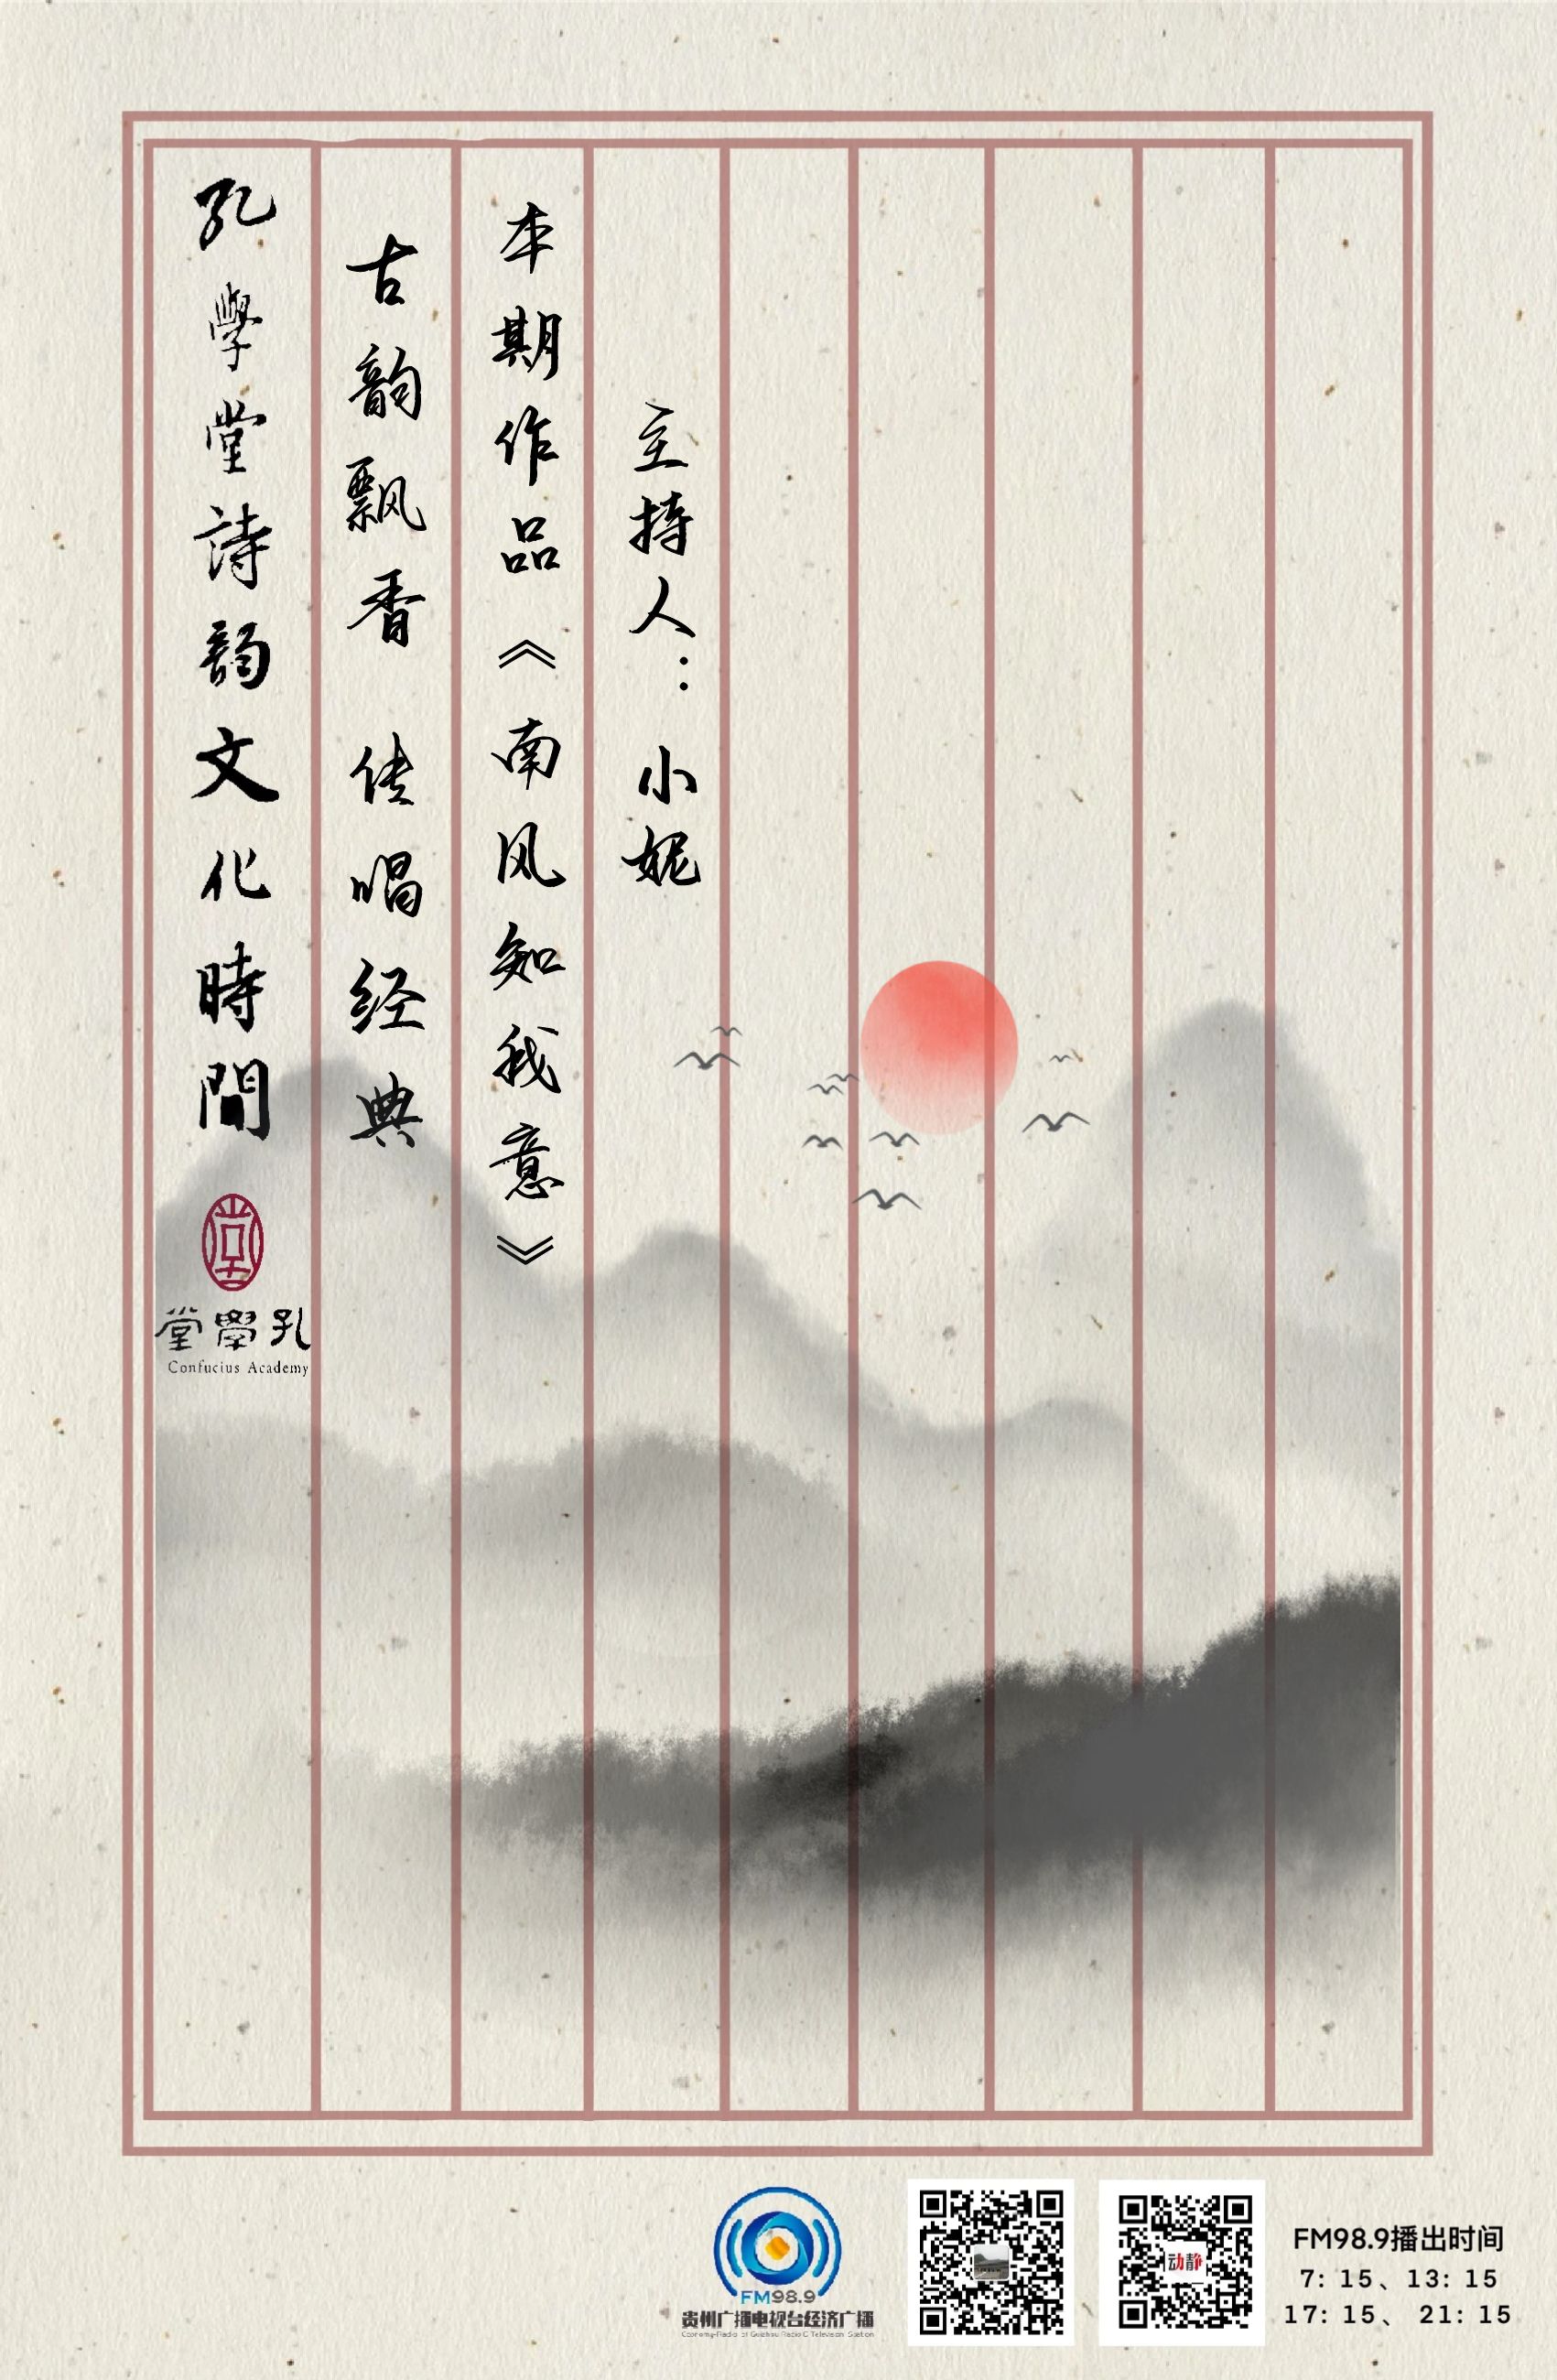 孔學堂詩韵文化時間
孔學堂
Confucius Academy
古韵飘香 传唱经典
本期作品《南风知我意》
主持人：小妮
FM98.9
贵州广播电视台经济广播
动静
FM98.9播出时间
7: 15、13: 15
17: 15、 21: 15